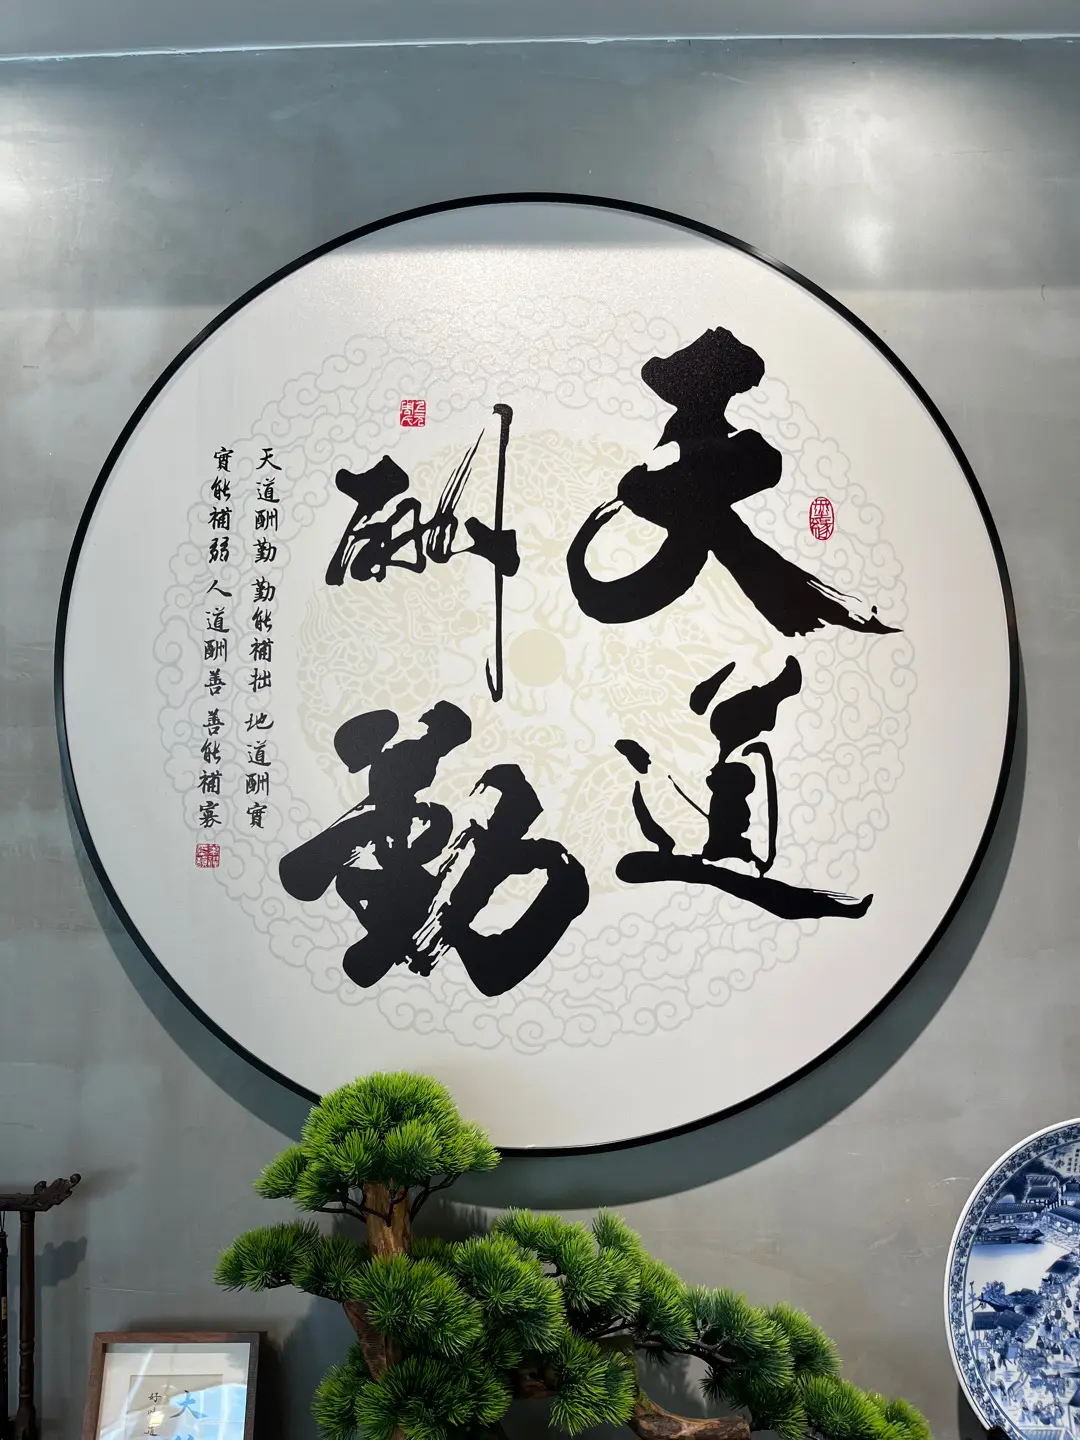 天道
酬勤
天道酬勤 勤能補拙 地道酬實
實能補弱 人道酬善 善能補寡
天
好
道